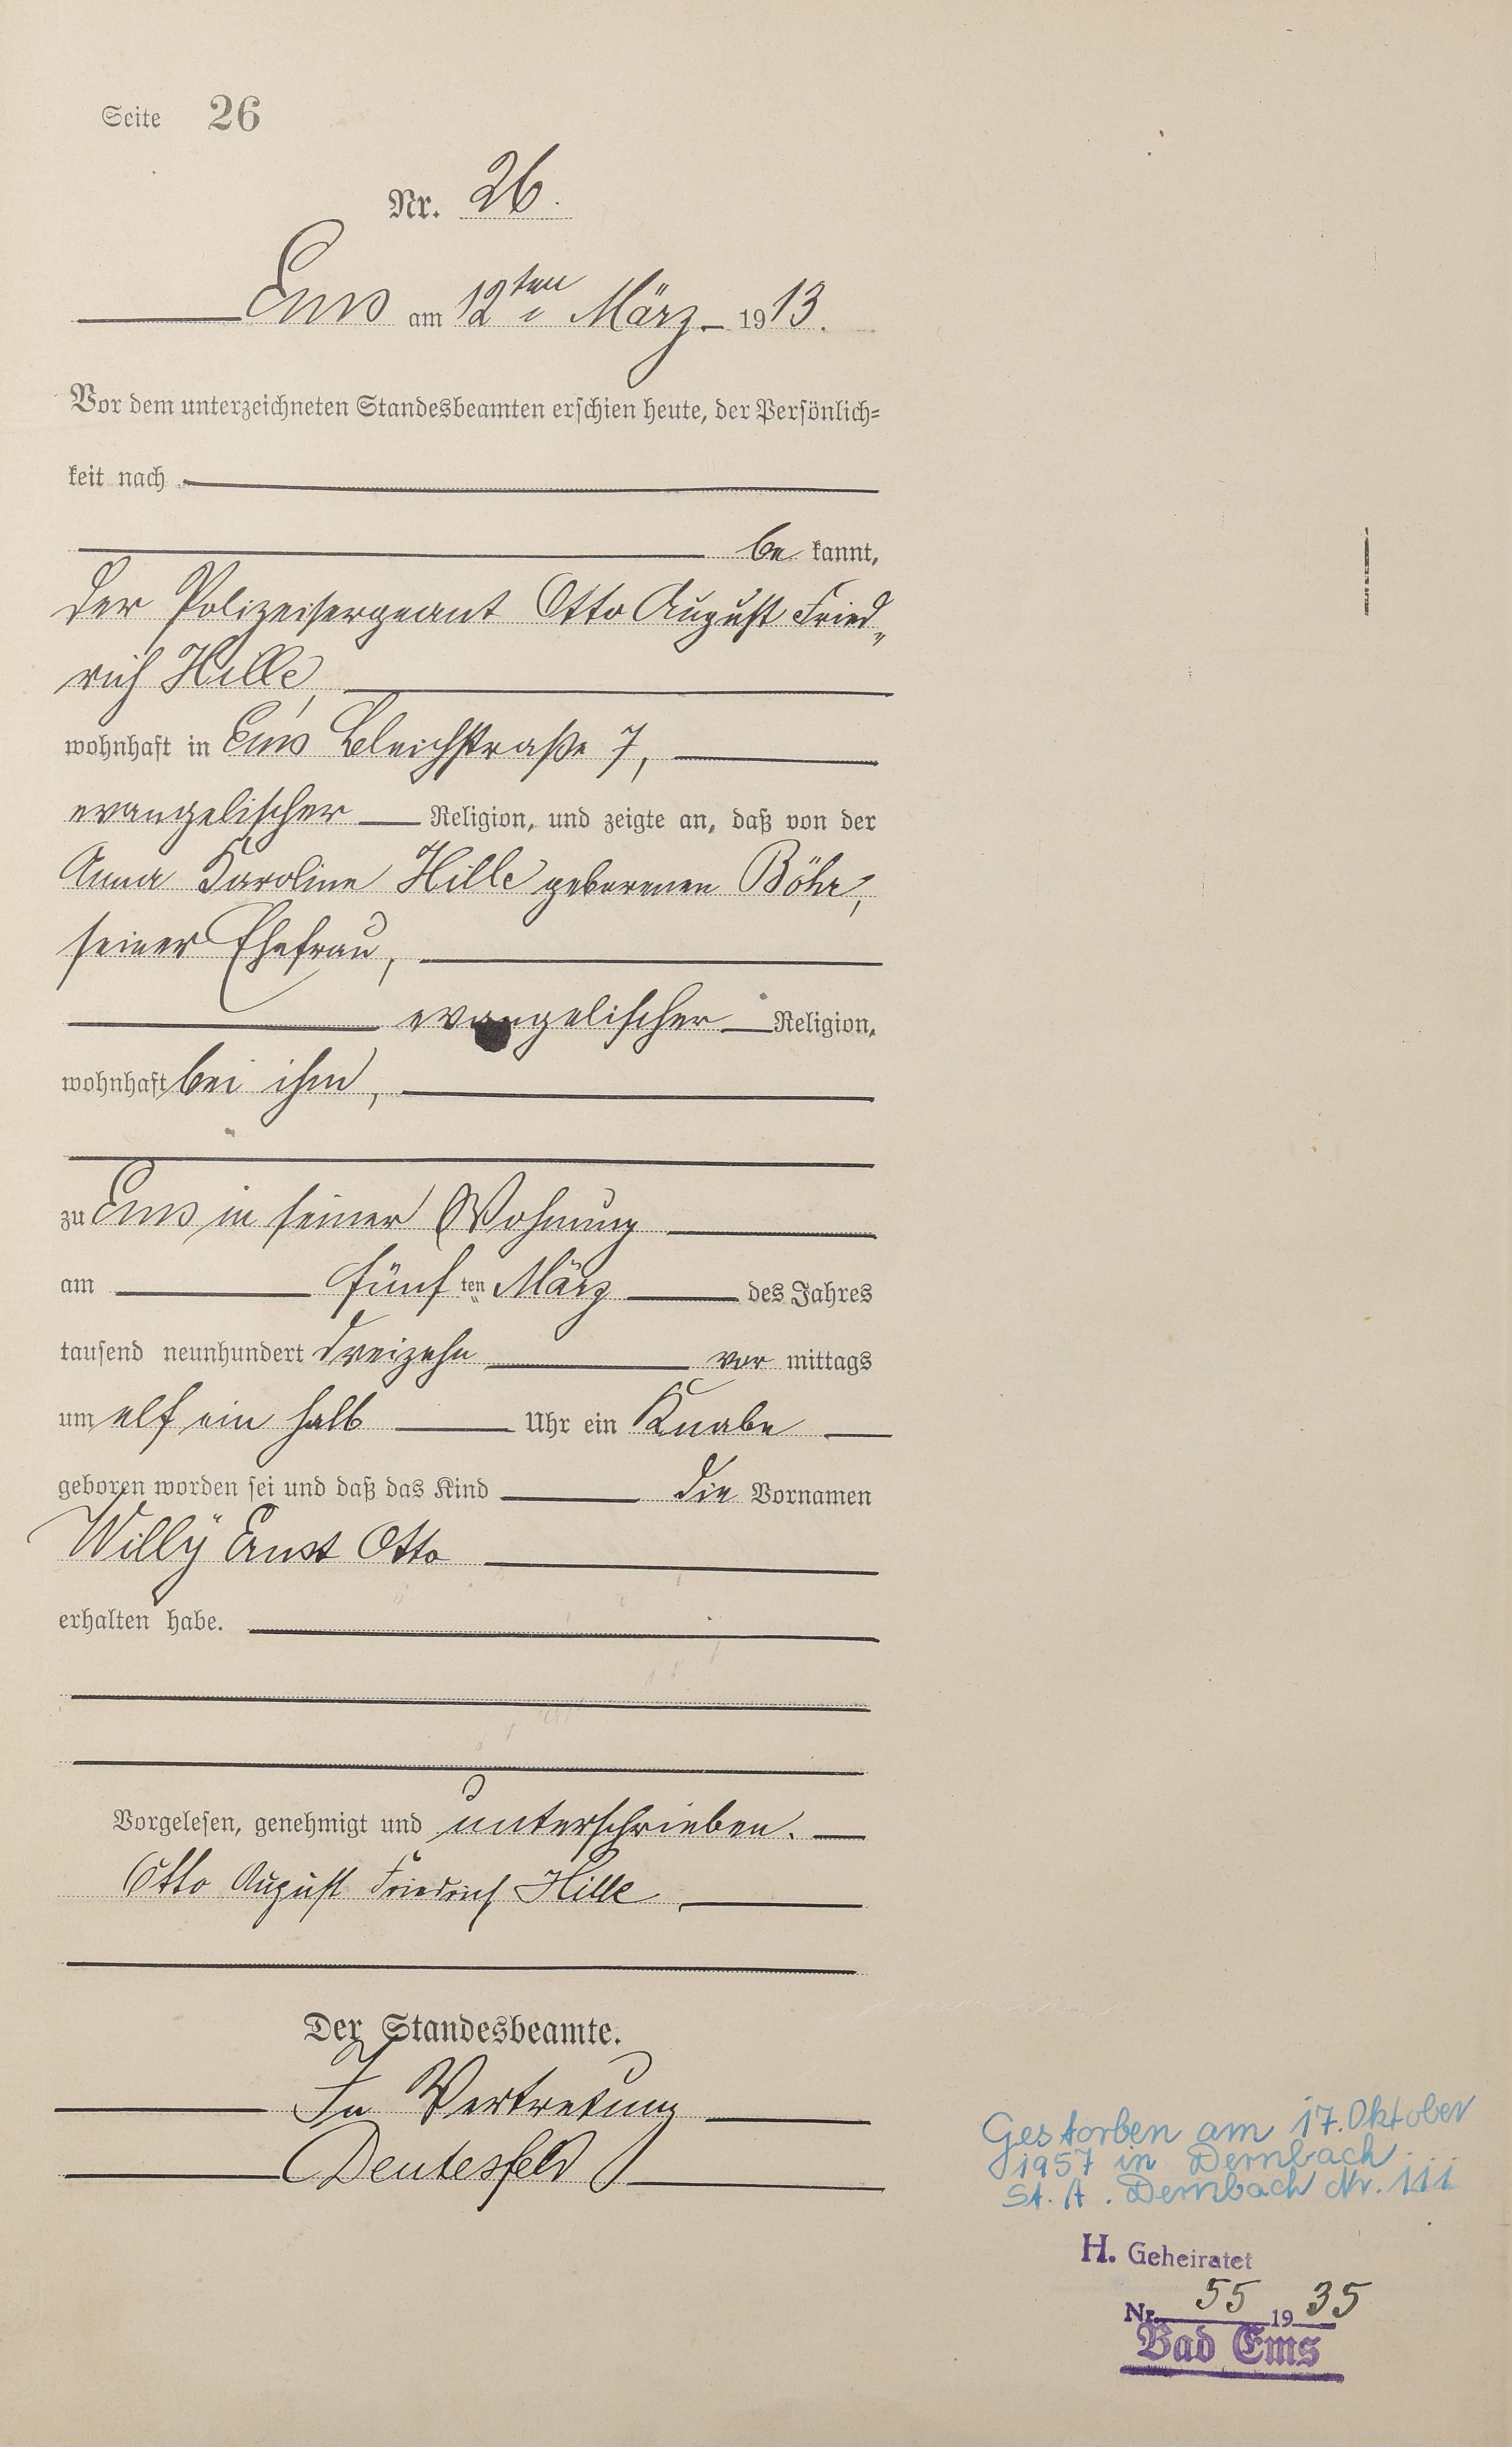 Seite 26
Nr. 26.
Ems am 12ten März 1913.
Vor dem unterzeichneten Standesbeamten erschien heute, der Persönlich=
keit nach
be kannt,
der Polizeisergeant Otto August Fried„
rich Hille,
wohnhaft in Ems Bleichstraße 7,
evangelischer Religion, und zeigte an, daß von der
Anna Karoline Hille geborenen Böhr,
seiner Ehefrau,
evangelischer Religion,
wohnhaft bei ihm,
zu Ems in seiner Wohnung
am fünf ten März des Jahres
tausend neunhundert dreizehn vor mittags
um elf ein halb Uhr ein Knabe
geboren worden sei und daß das Kind die Vornamen
Willÿ Ernst Otto
erhalten habe.
Vorgelesen, genehmigt und unterschrieben.
Otto August Friedrich Hille
Der Standesbeamte.
In Vertretung
Deutesfeld
Gestorben am 17. Oktober
1957 in Dernbach
St. A. Dernbach Nr. 111
H. Geheiratet
Nr. 55 1935
Bad Ems